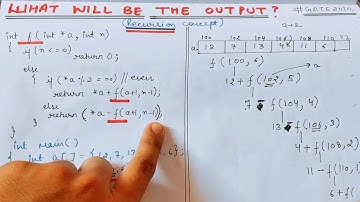 WHAT WILL BE THE OUTPUT?
(Recursion Concept)
#GATE2010
int f (int *a, int n)
{ if (n <= 0)
return 0;
else
if (*a % 2 == 0) // even
return *a + f(a+1, n-1)
else
return (*a - f(a+1, n-1));
}
int main()
{ int a[] = {12, 7, 13, 6};
a+2
100 102 104 106 108 110
a 12 7 13 4 11 6
f (100, 6)
→ a
12 + f(102, 5)
7 - f(104, 4)
13 - f(106, 3)
4 + f(108, 2)
11 - f(110, 1)
6 + f(